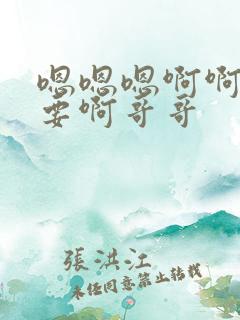 嗯嗯嗯啊啊
要啊哥哥
張洪江
未经同意禁止转载